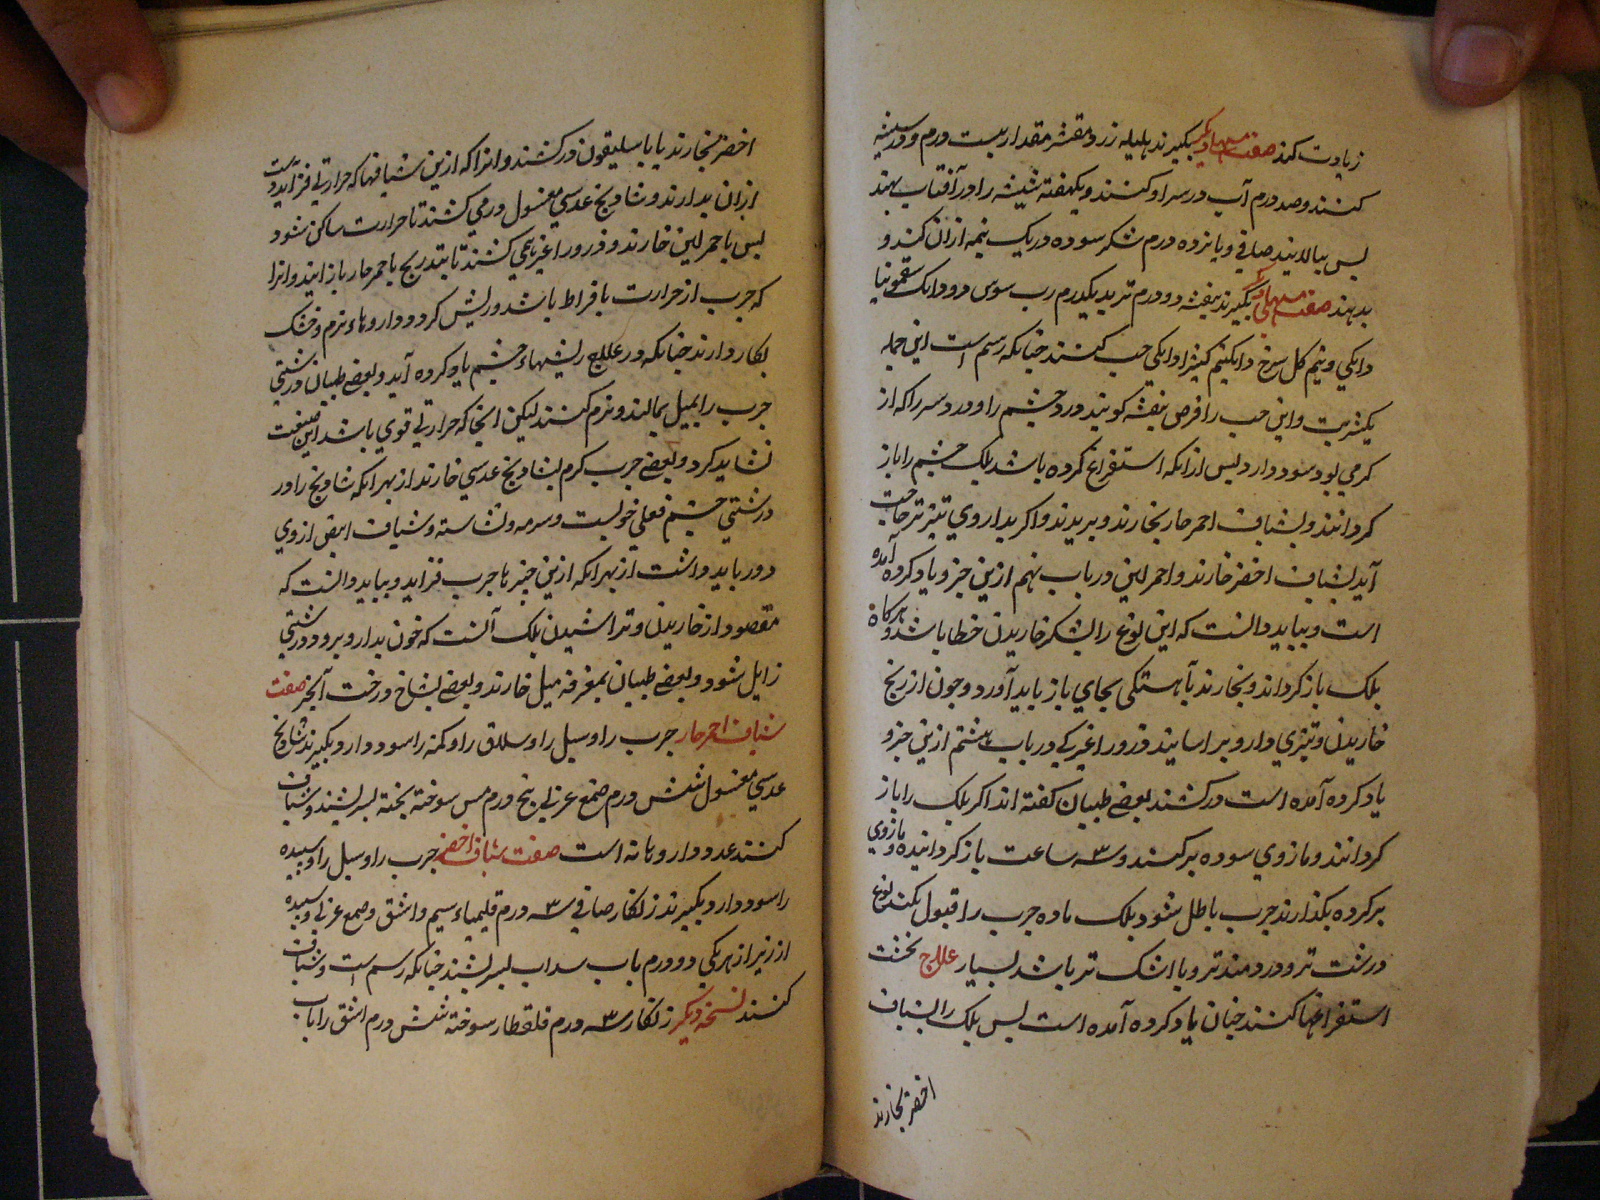 زیادت کند صفت مسهلی دیگر بگیرند هلیله زرد مقشر مقدار بیست درم و در شیشه
کنند و صد درم آب در سر او کنند و یکهفته شیشه را در آفتاب بنهند
پس ببالایند صافی و پانزده درم شکر سوده در یک نیمه ازان کنند و
بدهند صفت مسهلی دیگر بگیرند بنفشه دو درم تربد یکدرم رب سوس دو دانک سقمونیا
دانکی و نیم کل سرخ دانکنیم کتیرا دانکی حب کنند چنانکه رسم است این جمله
یکشربت و این حب را قرص بنفشه کویند درد چشم را و درد سر را که از
کرمی بود سود دارد و پس ازانکه استفراغ کرده باشد پلک چشم را باز
کردانند و بشیاف احمر حار بخارند و بریدند و اکر بداروی تیزتر حاجت
آید بشیاف اخضر خارند و احمر لین در باب نهم ازین جزو یاد کرده آمده
است و بباید دانست که این نوع را بشکر خاریدن خطا باشد و هرکاه
پلک باز کردانند و بخارند بآهستکی بجای باز باید آورد و چون از رنج
خاریدن و تیزی دارو براسایند ذرور اغبر که در باب هشتم ازین جزو
یاد کرده آمده است درکشند بعضی طبیبان کفته اند اکر پلک را باز
کردانند و مازوی سوده برکنند و سه ساعت باز کردانیده و مازوی
برکرده بکذارند جرب باطل شود پلک ماده جرب را قبول نکند نوع
درشت تر و دردمندتر و با اشک تر باشد بسیار علاج نخست
استفراغها کنند چنان یاد کرده آمده است پس پلک را بشیاف
اخضر بخارند
اخضر بخارند یا باسلیقون درکشند و انرا که ازین شیافها که حرارتی فزاید دست
ازان بدارند و شادنج عدسی مغسول درمی کشند تا حرارت ساکن شود
پس باحمر لین خارند و ذرور اغبر همی کشند تا بتدریج باحمر حار باز ایند و انرا
که جرب از حرارت بافراط باشد و ریش کردد داروهاء نرم و خشک
بکار دارند چنانکه در علاج ریشهاء چشم یاد کرده آید و بعضی طبیبان درشتی
جرب را بمیل بمالند و نرم کنند لیکن انجا که حرارتی قوی باشد این صنعت
نشاید کرد و بعضی جرب کرم بشادنج عدسی خارند از بهر انکه شادنج را در
درشتی چشم فعلی خوبست و سرمه و نشاسته و شیاف ابیض ازوی
دور باید داشت از بهر انکه ازین چیزها جرب فزاید و بباید دانست که
مقصود از خاریدن و تراشیدن پلک آنست که خون بدارو برود و درشتی
زایل شود و بعضی طبیبان بمغرفه میل خارند و بعضی بشاخ درخت انجیر صفت
شیاف احمر حار جرب را و سبل را و سلاق را و کمنه را سود دارد بگیرند شادنج
عدسی مغسول شش درم صمغ عربی پنج درم مس سوخته بخته بسرشند و شیاف
کنند عدد داروها نه است صفت شیاف اخضر جرب را و سبل را و سپیده
را سود دارد بگیرند زنکار صافی سه درم قلیمیاء سیم و اشق و صمغ عربی و سپیده
ارزیز از هر یکی دو درم باب سداب بسرشند چنانکه رسم است و شیاف
کنند نسخه دیگر زنکار سه درم قلقطار سوخته شش درم اشق را باب